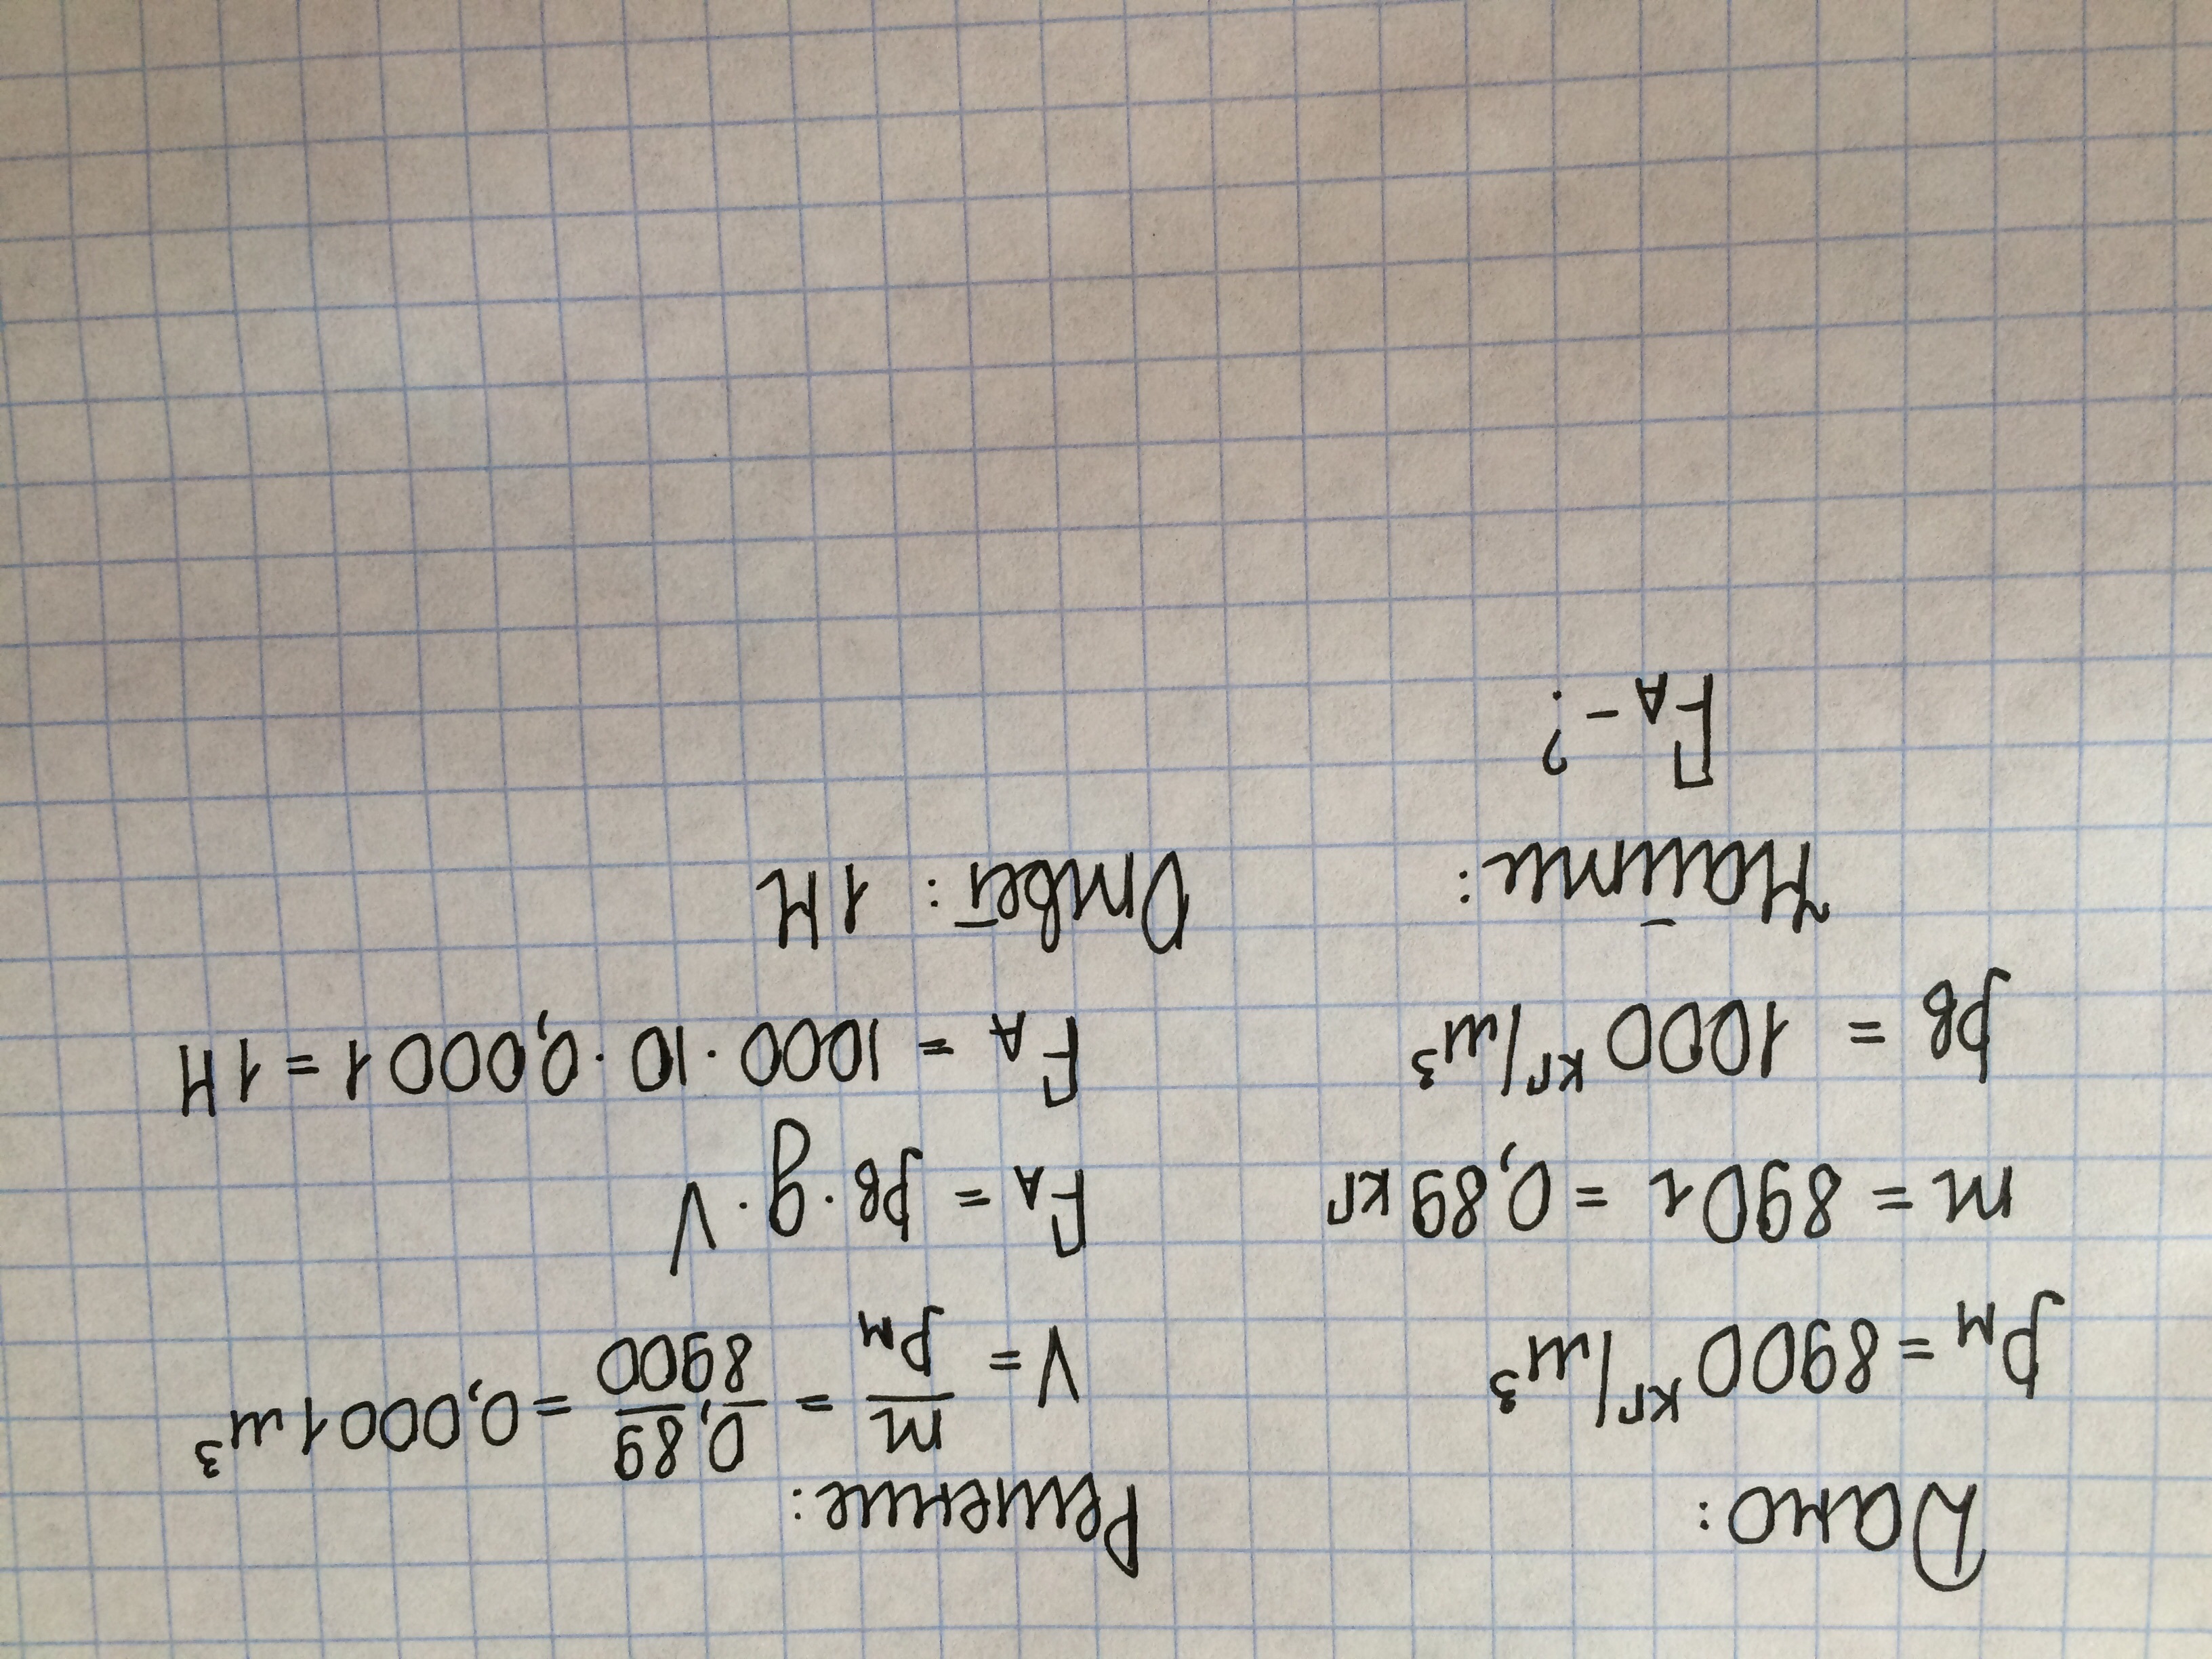 Дано:
ρм = 8900 кг/м³
m = 890г = 0,89 кг
ρв = 1000 кг/м³
Найти:
FА - ?
Решение:
V = m/ρм = 0,89/8900 = 0,0001 м³
FА = ρв · g · V
FА = 1000 · 10 · 0,0001 = 1 Н
Ответ: 1 Н